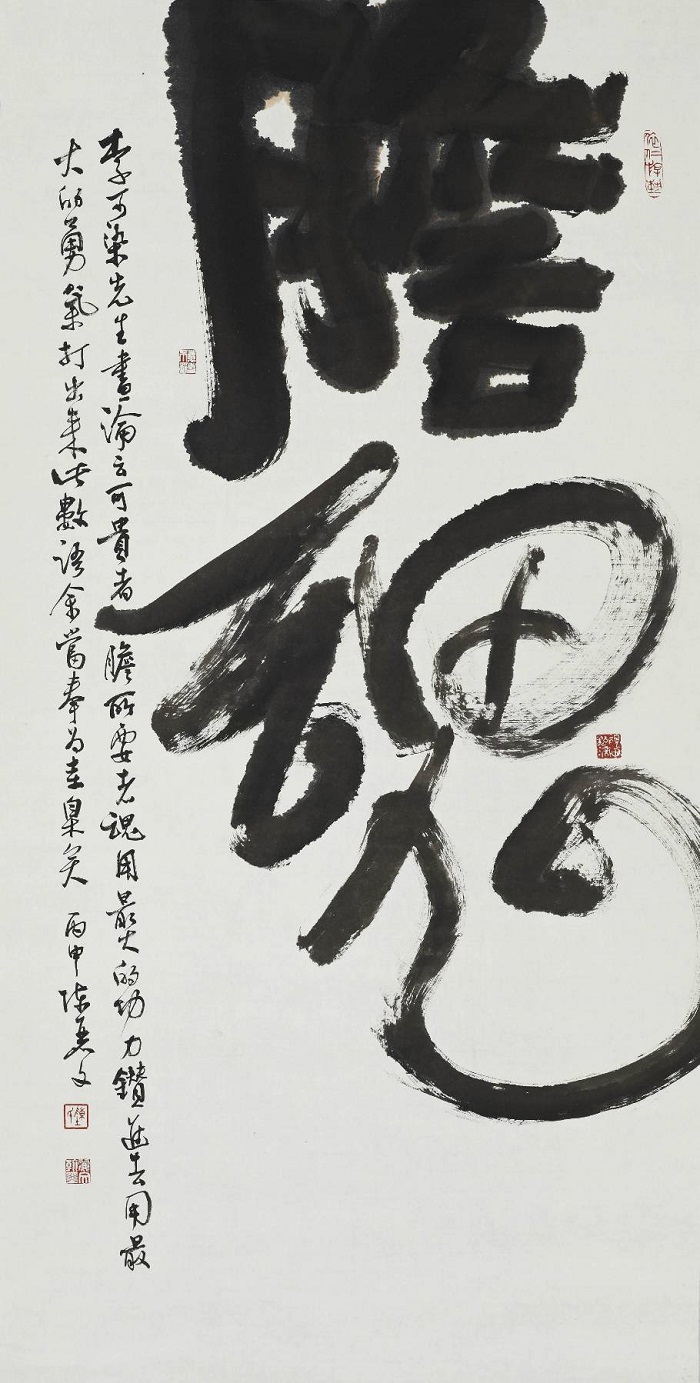 膽魂
李可染先生畫論云可貴者膽所要者魂用最大的功力鑽進去用最
大的勇氣打出來此數語余當奉為圭臬矣 丙申陳文